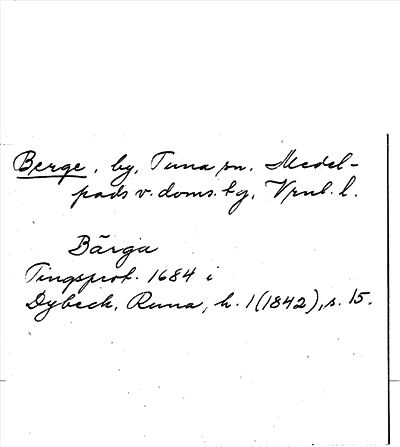 Berge, by, Tuna sn. Medel-
pads v. doms. tg, Vrnl. l.
Bärga
Tingsprot. 1684 i
Dybeck, Runa, h. 1 (1842), s. 15.